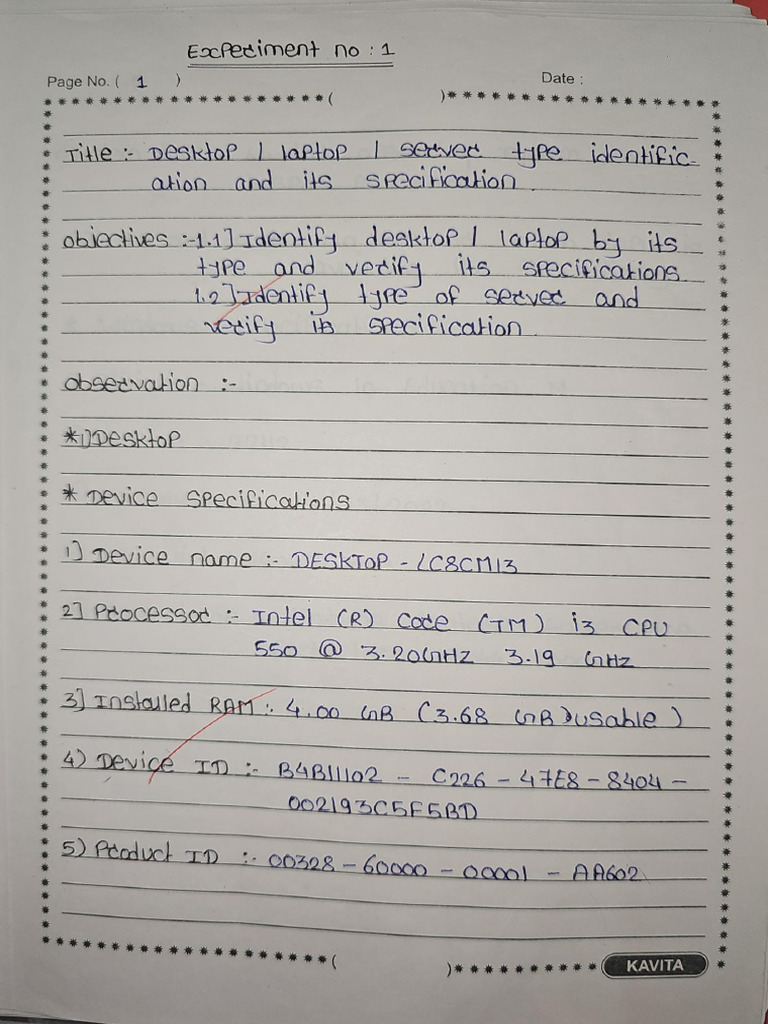 Experiment no : 1
Page No. ( 1 )
Date :
Title :- Desktop / laptop / server type identific-
ation and its specification.
objectives :-1.1] Identify desktop / laptop by its
type and verify its specifications.
1.2] Identify type of server and
verify its specification.
observation :-
*1) Desktop
* Device specifications
1] Device name :- DESKTOP - LC8CM13
2] Processor :- Intel (R) Core (TM) i3 CPU
550 @ 3.20GHz 3.19 GHz
3] Installed RAM :- 4.00 GB (3.68 GB) usable)
4) Device ID :- B4B11102 - C226 - 47E8 - 8404 -
002193C5F5BD
5) Product ID :- 00328 - 60000 - 00001 - AA602
KAVITA